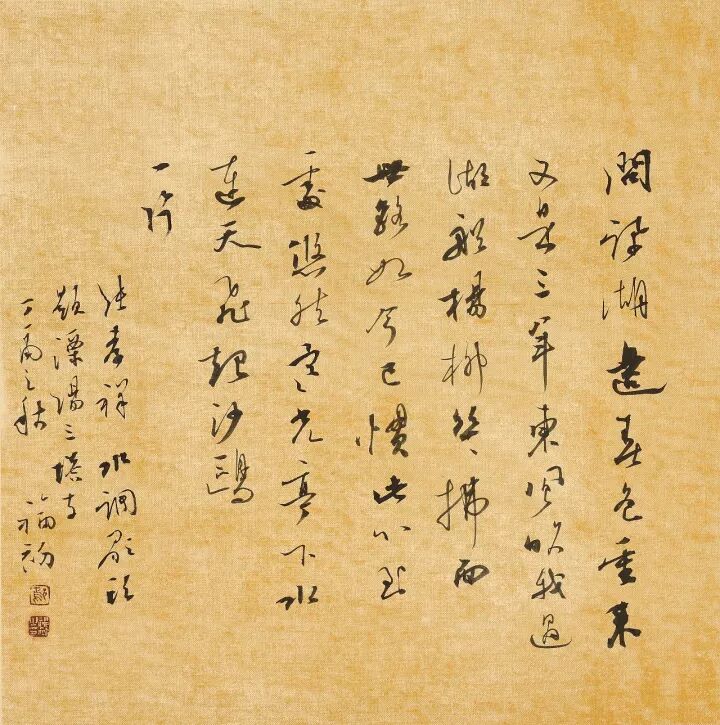 問訊湖邊春色重來
又是三年東風吹我過
湖船楊柳絲〻拂面
世路如今已慣此心到
處悠然寒光亭下水
連天飛起沙鷗
一片
張孝祥 水調歌頭
題溧陽三塔寺
丁酉之秋 福